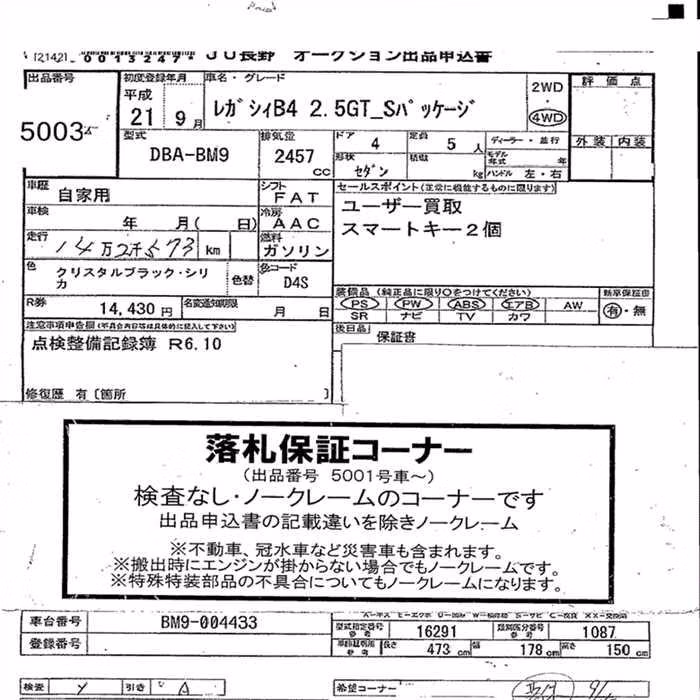 00132477 JU長野 オークション出品申込書
出品番号 初度登録年月 車名・グレード 2WD 評価点
平成 21 9月 レガシィB4 2.5GT_Sパッケージ 4WD
5003 型式 排気量 ドア 4 定員 5人 ディーラー・並行 外装 内装
DBA-BM9 2457cc 形状 セダン 積載 kg モデル年式 年
ハンドル 左・右
車歴 自家用 シフト FAT セールスポイント(正常に機能するものに限ります)
車検 年 月( 日) 冷房 AAC ユーザー買取
走行 14万2千573km 燃料 ガソリン スマートキー2個
色 クリスタルブラック・シリカ 色替 色コード D4S
装備品(純正品に限り○をつけてください) 新車保証書
R券 14,430円 名変通知期限 月 日 PS PW ABS エアB AW 有・無
SR ナビ TV カワ
注意事項申告欄(不具合内容等は具体的に記入して下さい) 後日品 保証書
点検整備記録簿 R6.10
修復歴 有〔箇所 〕
落札保証コーナー
(出品番号 5001号車~)
検査なし・ノークレームのコーナーです
出品申込書の記載違いを除きノークレーム
※不動車、冠水車など災害車も含まれます。
※搬出時にエンジンが掛からない場合でもノークレームです。
※特殊特装部品の不具合についてもノークレームになります。
車台番号 BM9-004433
型式指定番号 参考 16291 類別区分番号 参考 1087
登録番号 車両諸元 参考 長さ 473cm 幅 178cm 高さ 150cm
検査 引き A 希望コーナー